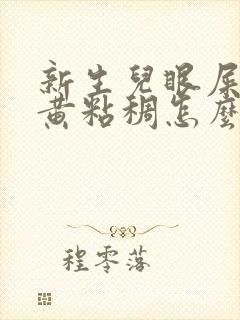 新生兒眼屎
黃粘稠怎麼
程零落